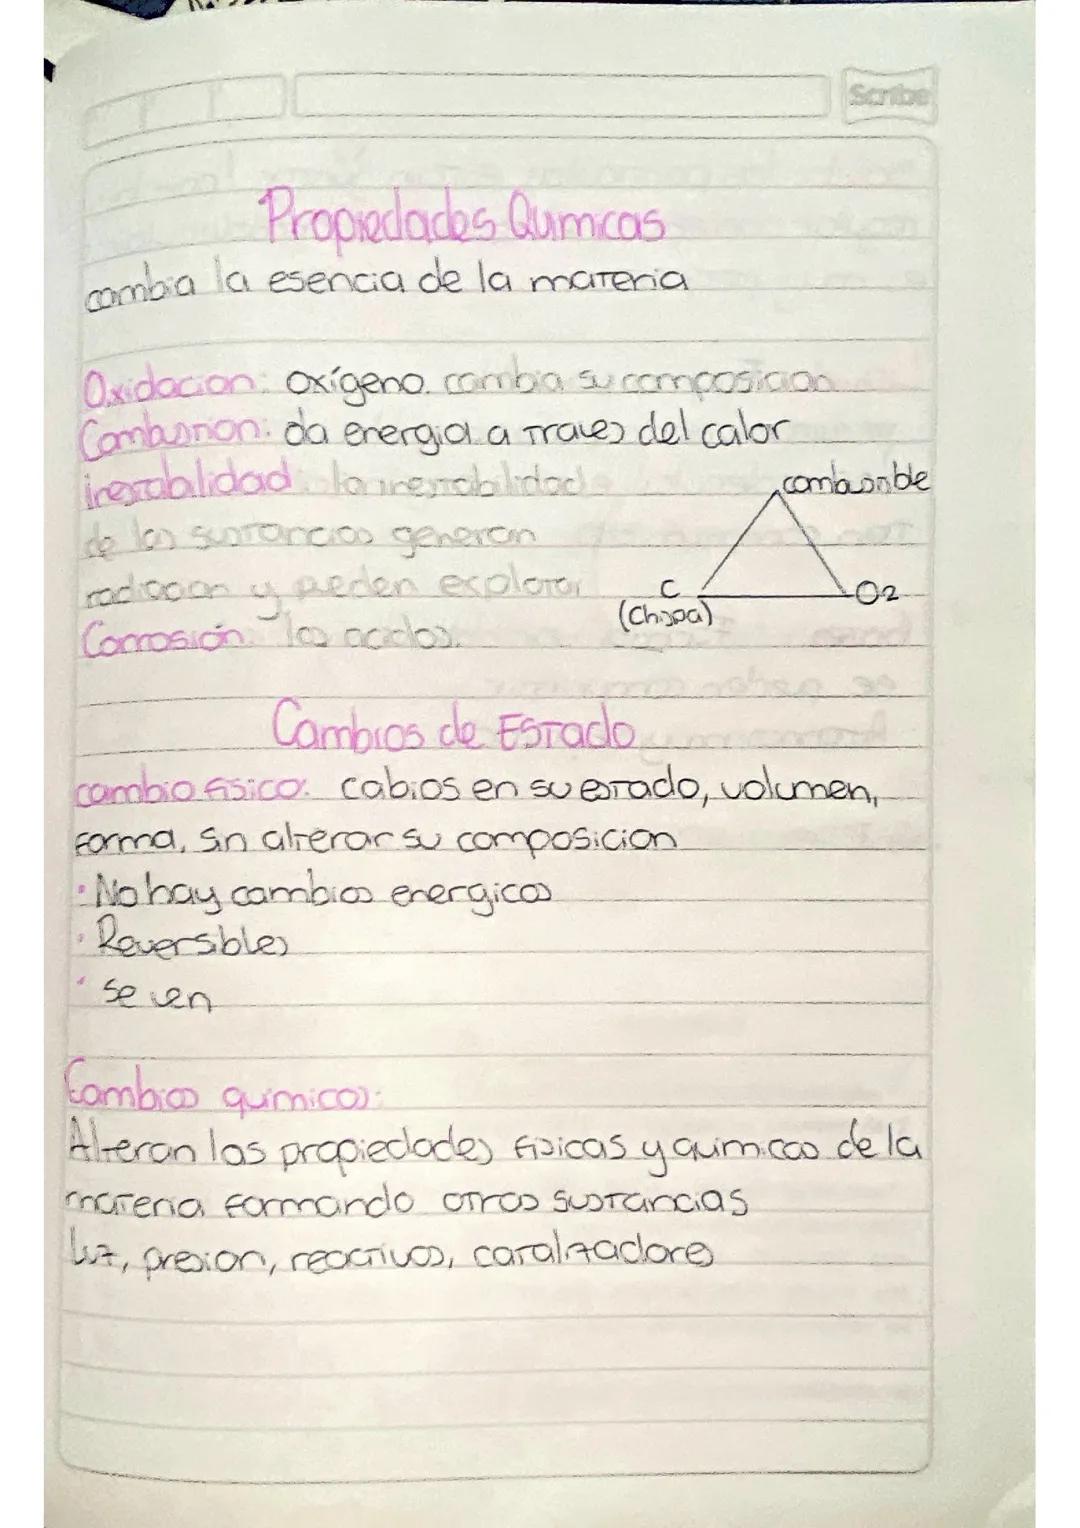 Scribe
Propiedades Quimicas
cambia la esencia de la materia
Oxidacion: oxígeno. cambia su composicion
Combustion: da energia a traves del calor
inestabilidad la inestabilidad
de las sustancias generan
radiacion y pueden explotar
Corrosión los acidos.
combustible
C
(Chispa)
O2
Cambios de Estado
cambio fisico: cabios en su estado, volumen,
forma, sin alterar su composicion
· No hay cambios energicos
· Reversibles
· se ven
Cambios quimicos:
Alteran las propiedades fisicas y quimicas de la
materia formando otras sustancias
luz, presion, reactivos, catalizadores